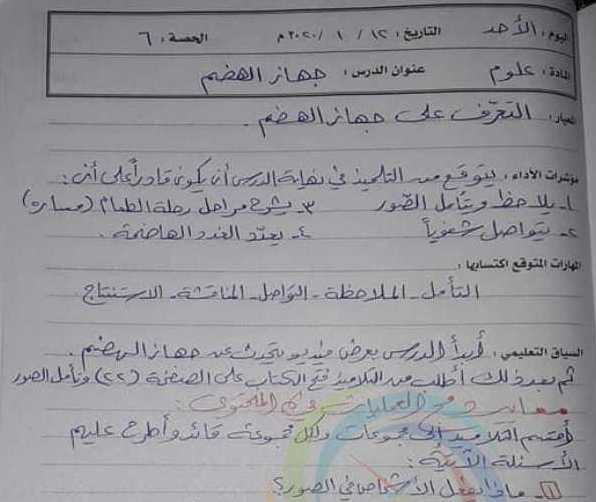 اليوم: الأحد التاريخ: ١٢ / ١ / ٢٠٢٠ م الحصة: ٦
المادة: علوم عنوان الدرس: جهاز الهضم
المعيار: التعرّف على جهاز الهضم.
مؤشرات الأداء: يتوقع من التلميذ في نهاية الدرس أن يكون قادراً على أن:
١- يلاحظ ويتأمل الصّور ٣- يشرح مراحل رحلة الطعام (مساره)
٢- يتواصل شفوياً ٤- يعدّد الغدد الهاضمة.
المهارات المتوقع اكتسابها:
التأمل - الملاحظة - التواصل - المناقشة - الاستنتاج
السياق التعليمي: أبدأ الدرس بعرض فيديو يتحدث عن جهاز الهضم.
ثم بعد ذلك أطلب من التلاميذ فتح الكتاب على الصفحة (٢٢) وتأمل الصور
دمج العمليات في المحتوى:
أقسم التلاميذ إلى مجموعات ولكل مجموعة قائد وأطرح عليهم
الأسئلة الآتية:
ماذا يفعل الأشخاص في الصور؟